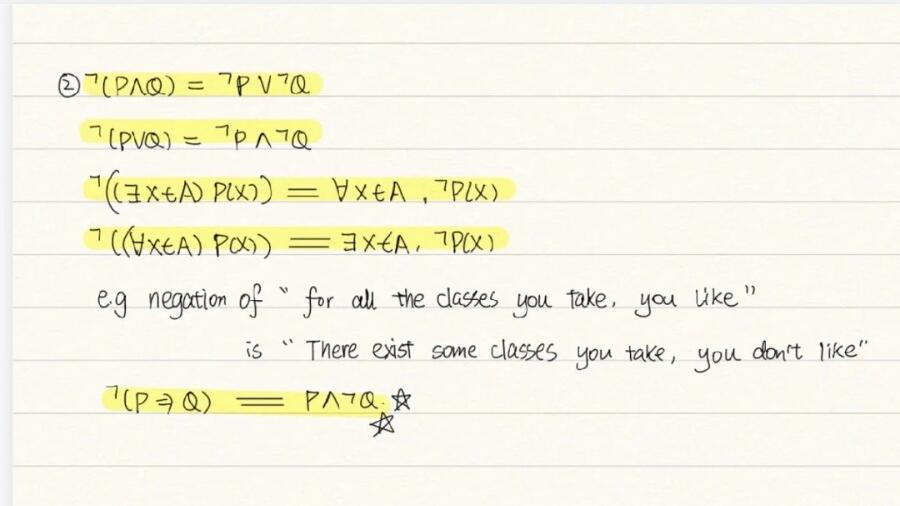 ② ¬(P∧Q) = ¬P∨¬Q
¬(P∨Q) = ¬P∧¬Q
¬((∃x∈A) P(x)) = ∀x∈A, ¬P(x)
¬((∀x∈A) P(x)) = ∃x∈A, ¬P(x)
e.g negation of "for all the classes you take, you like"
is "There exist some classes you take, you don't like"
¬(P⇒Q) = P∧¬Q. ☆
☆